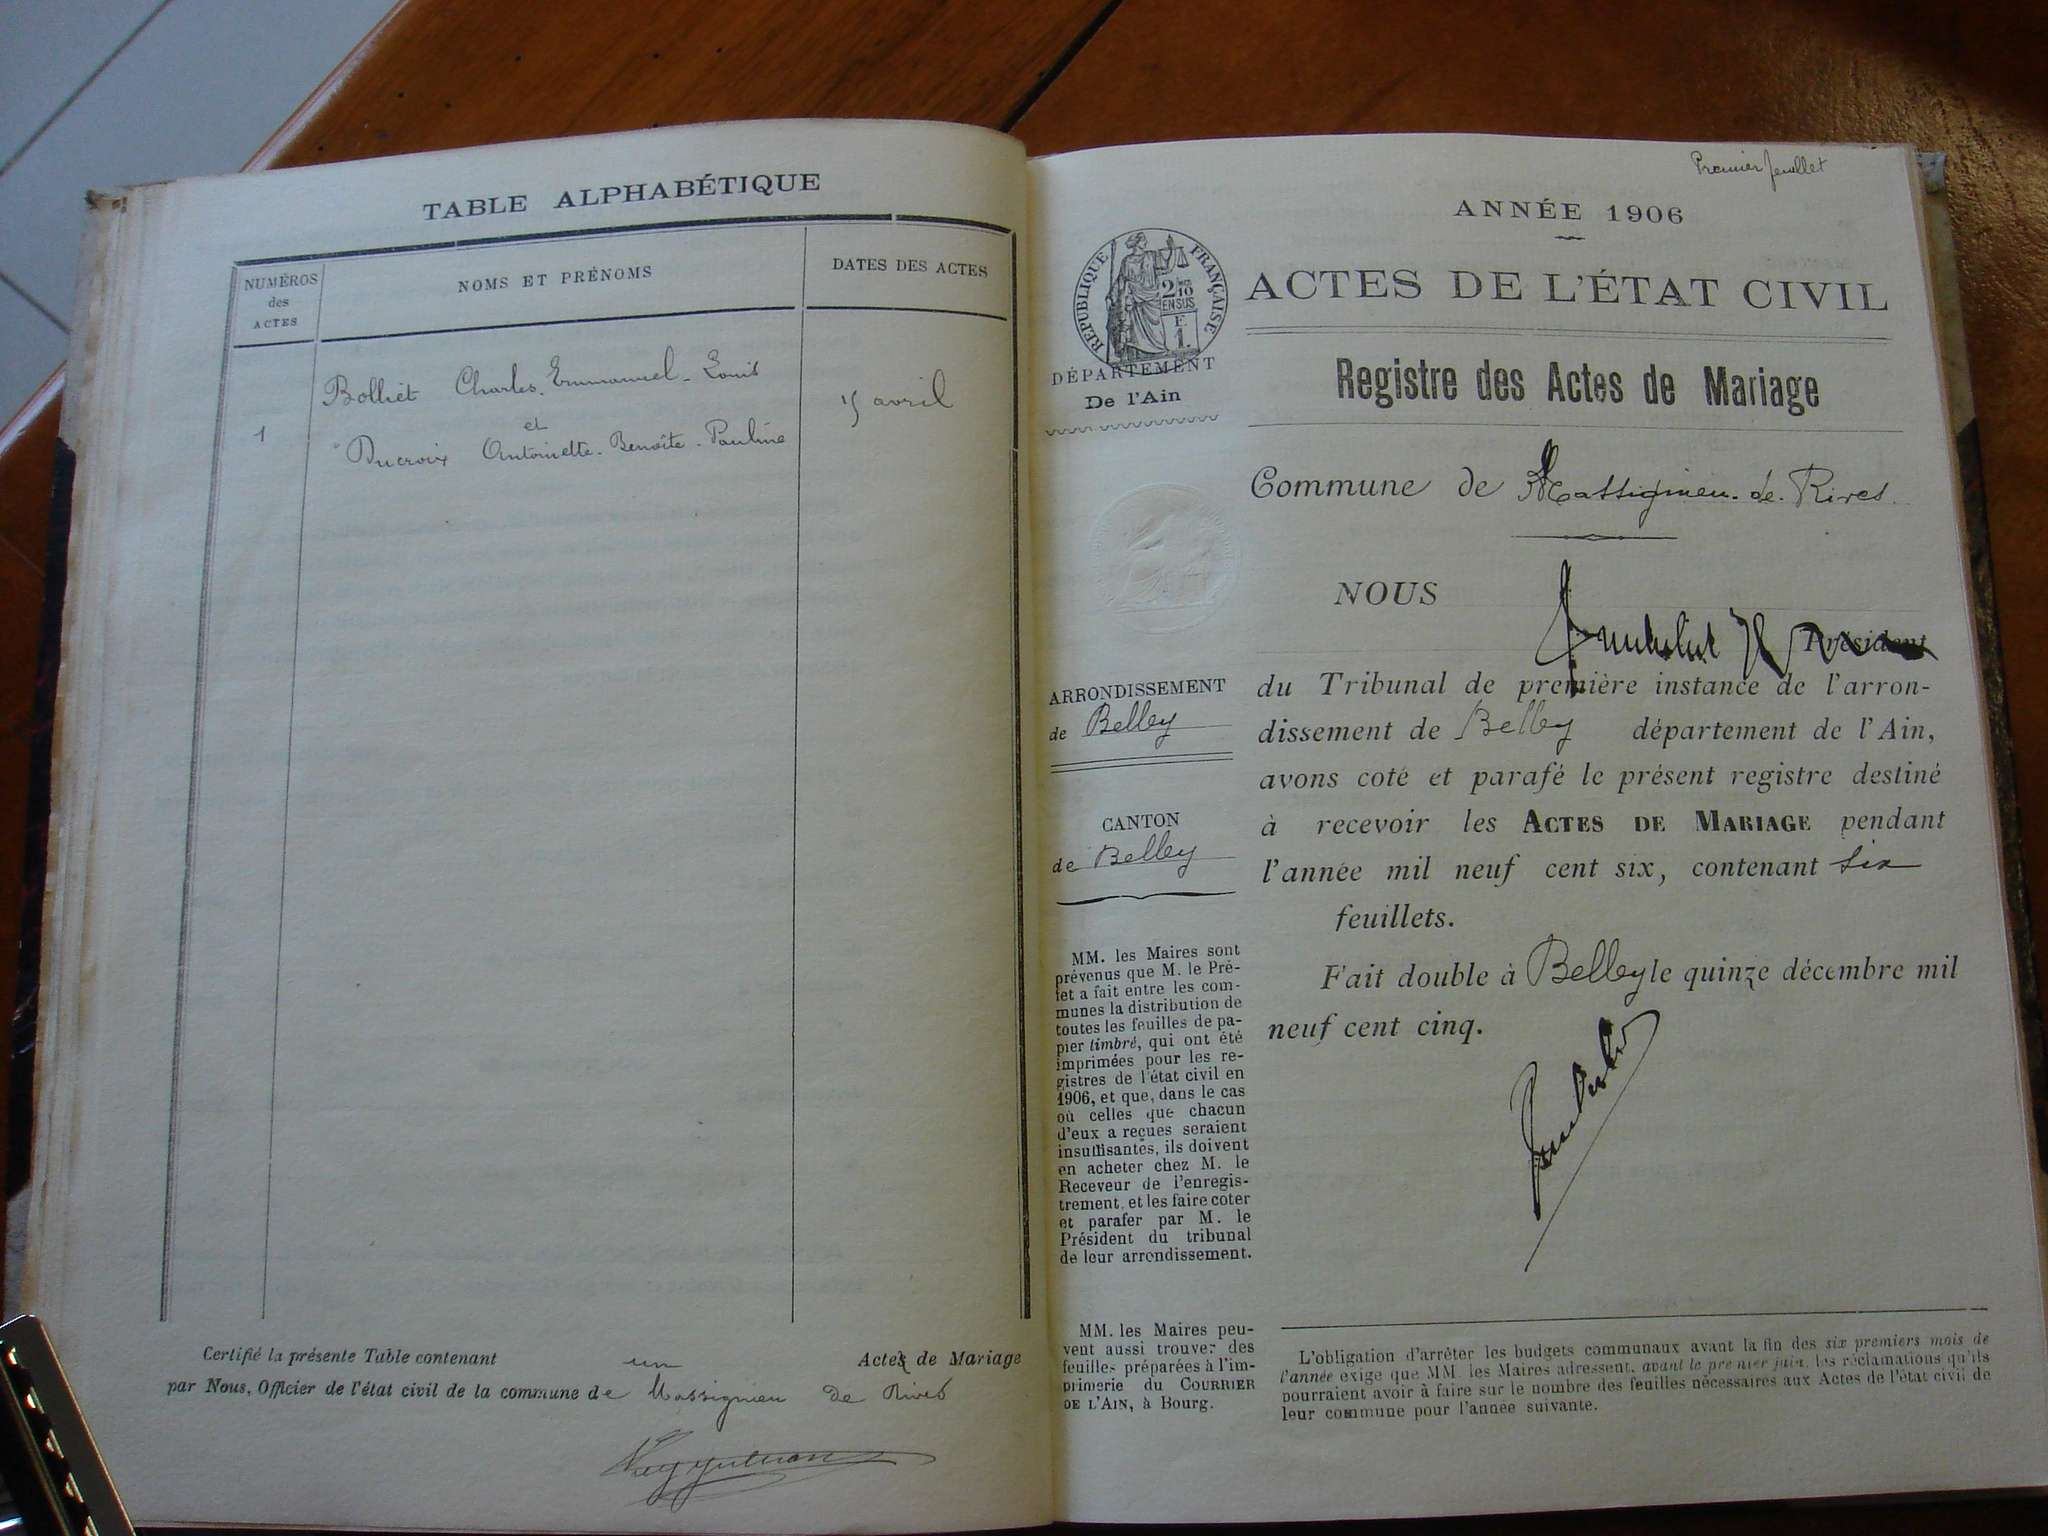 TABLE ALPHABÉTIQUE
NUMÉROS
des
ACTES
NOMS ET PRÉNOMS
DATES DES ACTES
Bolliet Charles-Emmanuel-Louis
1
et
Ducroix Antoinette-Benoîte-Pauline
avril
Certifié la présente Table contenant un Acte de Mariage
par Nous, Officier de l'état civil de la commune de Massignieu de Rives
Premier feuillet
ANNÉE 1906
RÉPUBLIQUE FRANÇAISE
2/10
EN SUS
F.
1.
ACTES DE L'ÉTAT CIVIL
DÉPARTEMENT
De l'Ain
Registre des Actes de Mariage
Commune de Massignieu-de-Rives
NOUS
Président
du Tribunal de première instance de l'arron-
dissement de Belley département de l'Ain,
avons coté et parafé le présent registre destiné
à recevoir les ACTES DE MARIAGE pendant
l'année mil neuf cent six, contenant six
feuillets.
Fait double à Belley le quinze décembre mil
neuf cent cinq.
ARRONDISSEMENT
de Belley
CANTON
de Belley
MM. les Maires sont
prévenus que M. le Pré-
fet a fait entre les com-
munes la distribution de
toutes les feuilles de pa-
pier timbré, qui ont été
imprimées pour les re-
gistres de l'état civil en
1906, et que, dans le cas
où celles que chacun
d'eux a reçues seraient
insuffisantes, ils doivent
en acheter chez M. le
Receveur de l'enregis-
trement, et les faire coter
et parafer par M. le
Président du tribunal
de leur arrondissement.
MM. les Maires peu-
vent aussi trouver des
feuilles préparées à l'im-
primerie du COURRIER
DE L'AIN, à Bourg.
L'obligation d'arrêter les budgets communaux avant la fin des six premiers mois de
l'année exige que MM. les Maires adressent, avant le premier juin, les réclamations qu'ils
pourraient avoir à faire sur le nombre des feuilles nécessaires aux Actes de l'état civil de
leur commune pour l'année suivante.